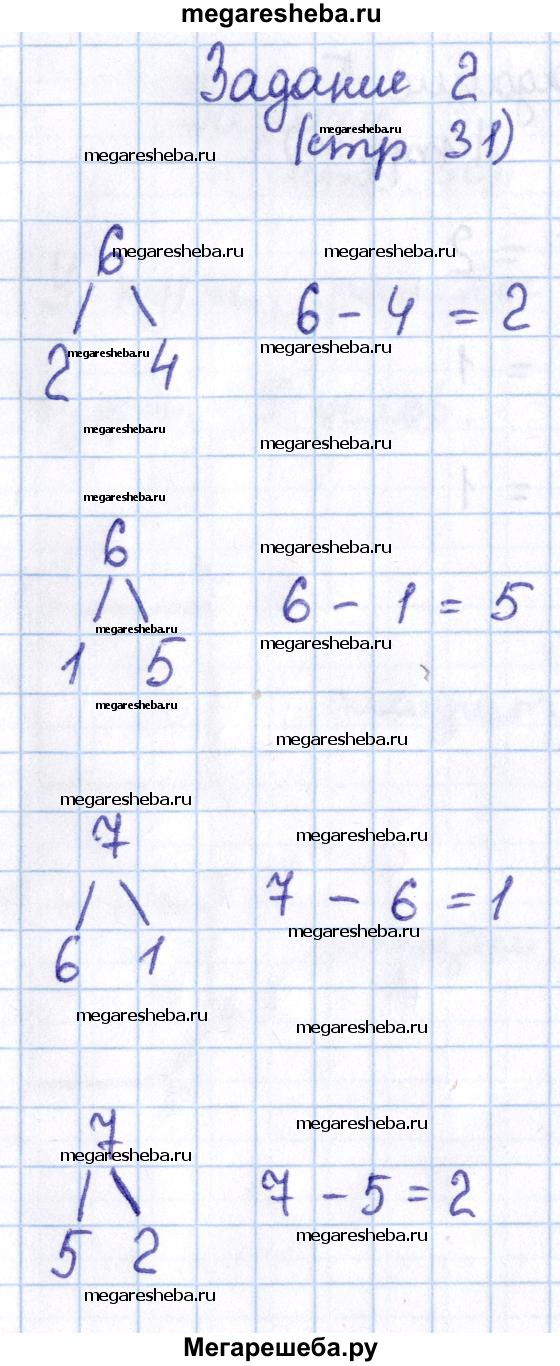 megaresheba.ru
Задание 2
megaresheba.ru
megaresheba.ru (стр 31)
6
megaresheba.ru megaresheba.ru
6 - 4 = 2
2 megaresheba.ru 4
megaresheba.ru
megaresheba.ru megaresheba.ru
megaresheba.ru
6
megaresheba.ru
6 - 1 = 5
megaresheba.ru
1 5
megaresheba.ru
megaresheba.ru
megaresheba.ru
megaresheba.ru
7
megaresheba.ru
7 - 6 = 1
6 1
megaresheba.ru
megaresheba.ru
megaresheba.ru
7
megaresheba.ru
megaresheba.ru
7 - 5 = 2
5 2
megaresheba.ru
megaresheba.ru
Мегарешеба.ру